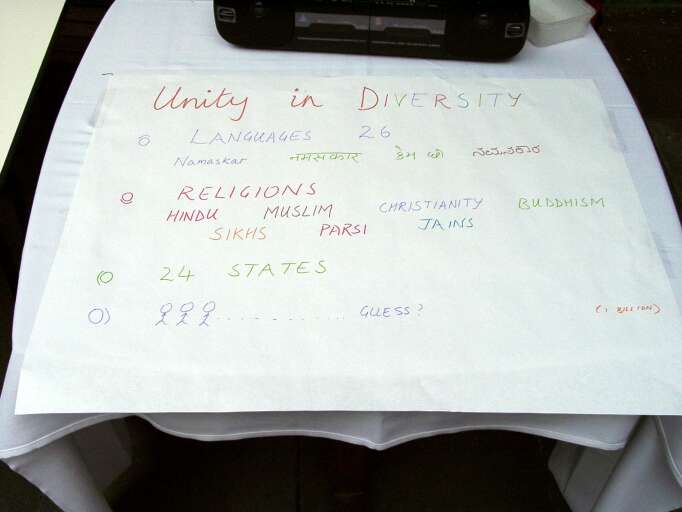 Unity in DIVERSITY
LANGUAGES 26
Namaskar नमस्कार કેમ છો ನಮಸ್ಕಾರ
RELIGIONS
HINDU MUSLIM CHRISTIANITY BUDDHISM
SIKHS PARSI JAINS
24 STATES
........... GUESS? (1 BILLION)